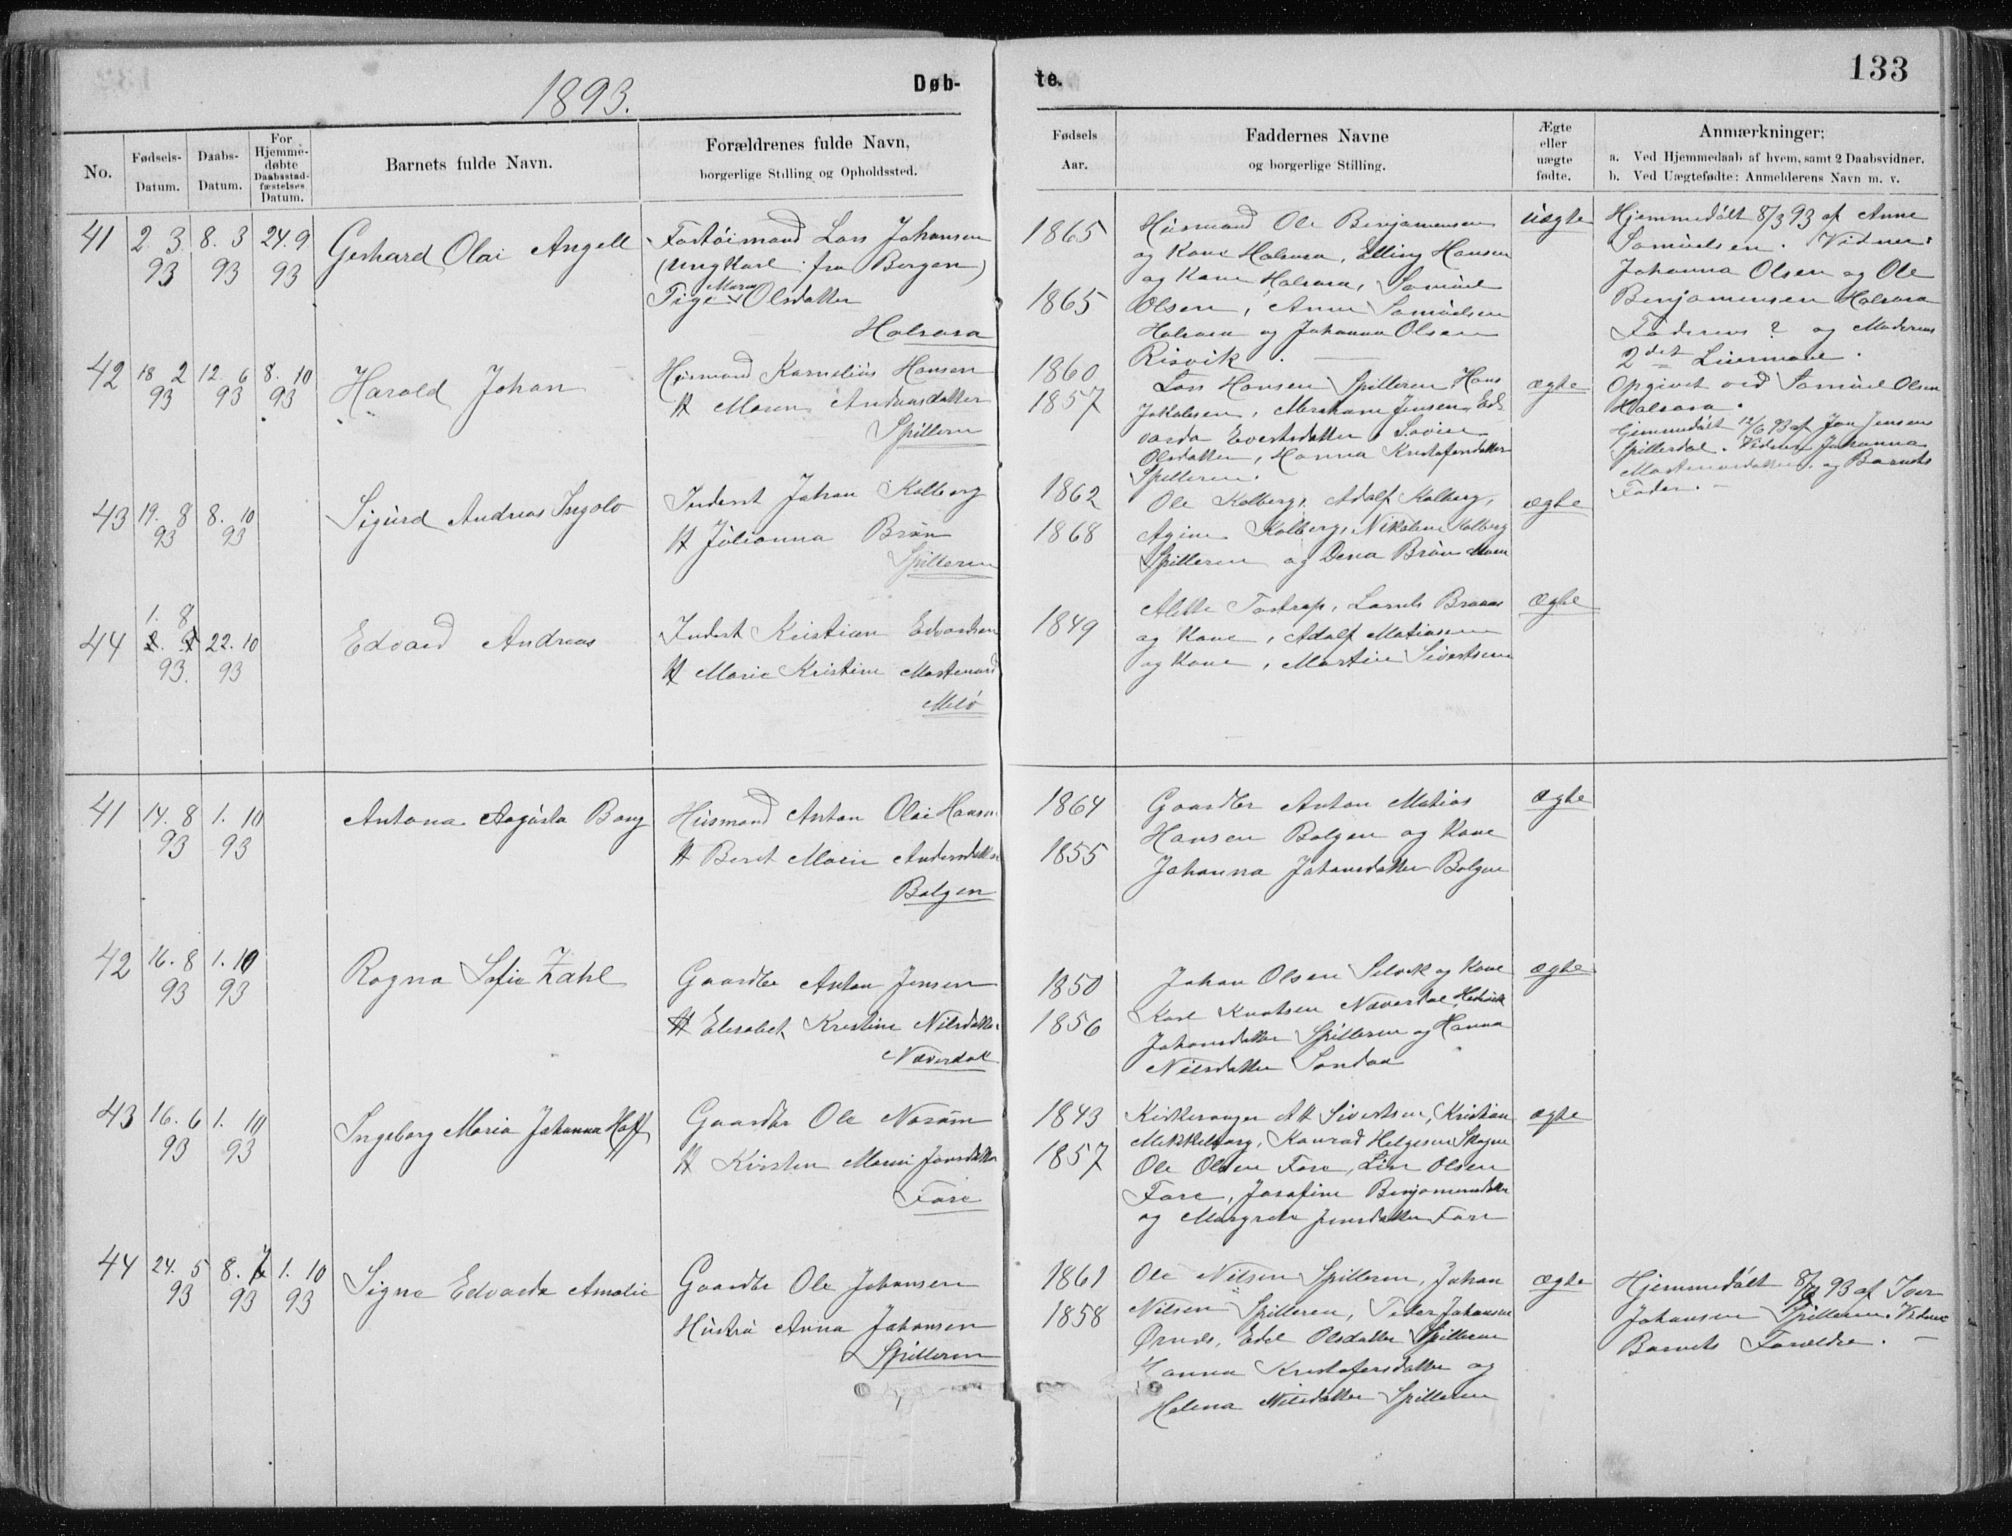 1893.
Døb-
te.
133
No.
Fødsels-
Datum.
Daabs-
Datum.
For
Hjemme-
døbte
Daabsstad-
fæstelses
Datum.
Barnets fulde Navn.
Forældrenes fulde Navn,
borgerlige Stilling og Opholdssted.
Fødsels
Aar.
Faddernes Navne
og borgerlige Stilling.
Ægte
eller
uægte
fødte.
Anmærkninger:
a. Ved Hjemmedaab af hvem, samt 2 Daabsvidner.
b. Ved Uægtefødte: Anmelderens Navn m. v.
41
2. 3
93
8. 3
93
24. 9
93
Gerhard Olai Angell
Lars Johansen
(Ungkarl fra Bergen)
Pige Maren Olsdatter
Halsosa
1865
1865
Husmand Ole Benjamensen
og Kone Halsosa, Elling Hansen
og Kone Halsosa, Samuel
Olsen, Anne Samuelsen
Halsosa og Johanna Olsen
Risvik.
Uægte
Hjemmedøbt 8/3 93 af Anne
Samuelsen. Vidner:
Johanna Olsen og Ole
Benjamensen Halsosa
Faderens ? og Moderens
2det Leiermaal.
Opgivet ved Samuel Olsen
Halsosa.
42
18. 2
93
12. 6
93
8. 10
93
Harald Johan
Husmand Kornelius Hansen
H Maren Andreasdatter
Spilleren
1860
1857
Lars Hansen Spilleren, Hans
Jakobsen, Jensen, Ed-
varda Evertsdatter,
Olsdatter, Hanna Kristofersdatter
Spilleren.
ægte
Hjemmedøbt 12/6 93 af Jon Jensen
Spillerdal. Vidner Johanna
og Barnets
Fader. –
43
19. 8
93
8. 10
93
Sigurd Andreas Ingolv
Inderst Johan Kolberg
H Julianna Brun
Spilleren
1862
1868
Ole Kolberg, Adolf Kolberg,
Kolberg, Nikoline Kolberg
Spilleren og Dena Brun
ægte
44
1. 8
93.
22. 10
93
Edvard Andreas
Inderst Kristian Edvardsen
H Marie Kristine
Melø
1849
Alette Tostrup,
og Kone, Adolf Matiasen
og Kone, Martin Sivertsen
ægte
41
14. 8
93
1. 10
93
Antona Augusta Bang
Husmand Anton Olai Hansen
H Beret Marie Andersdatter
Bolgen
1864
1855
Gaardbr Anton Matias
Hansen Bolgen og Kone
Johanna Johansdatter Bolgen
ægte
42
16. 8
93
1. 10
93
Ragna Sofie Zahl
Gaardbr Anton Jensen
H Elisabet Kristine Nilsdatter
Næverdal
1850
1856
Johan Olsen Selvik og Kone
Karl Knutsen Næverdal,
Johansdatter Spilleren og Hanna
Nilsdatter Sandaa
ægte
43
16. 6
93
1. 10
93
Ingeborg Maria Johanna Hoff
Gaardbr Ole
H Kirsten Marie Jonsdatter
Fore
1843
1857
Kirkesanger Sivertsen, Kristian
Mikkelborg, Konrad Helgesen
Ole Olsen Fore, Olsen
Fore, Josefine Benjaminsdatter
og Margrete Jensdatter Fore
ægte
44
24. 5
93
8. 7
93
1. 10
93
Signe Edvarda Amalie
Gaardbr Ole Johansen
Hustru Anna Johansen
Spilleren
1861
1858
Ole Nilsen Spilleren, Johan
Nilsen Spilleren, Peter Johansen
Ørnes, Edel Olsdatter Spilleren
Hanna Kristofersdatter og
Helena Nilsdatter Spilleren
ægte
Hjemmedøbt 8/7 93 af Iver
Johansen Spilleren. Vidner
Barnets Forældre. –